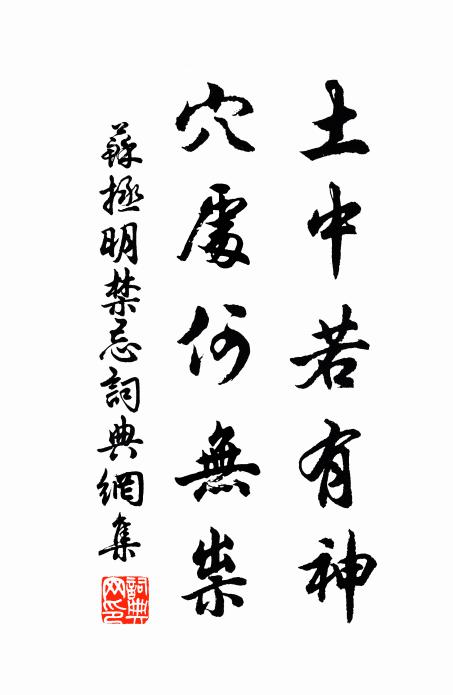 土中若有神
穴處何無祟
蘇拯明禁忌詞典網集
詞典网印